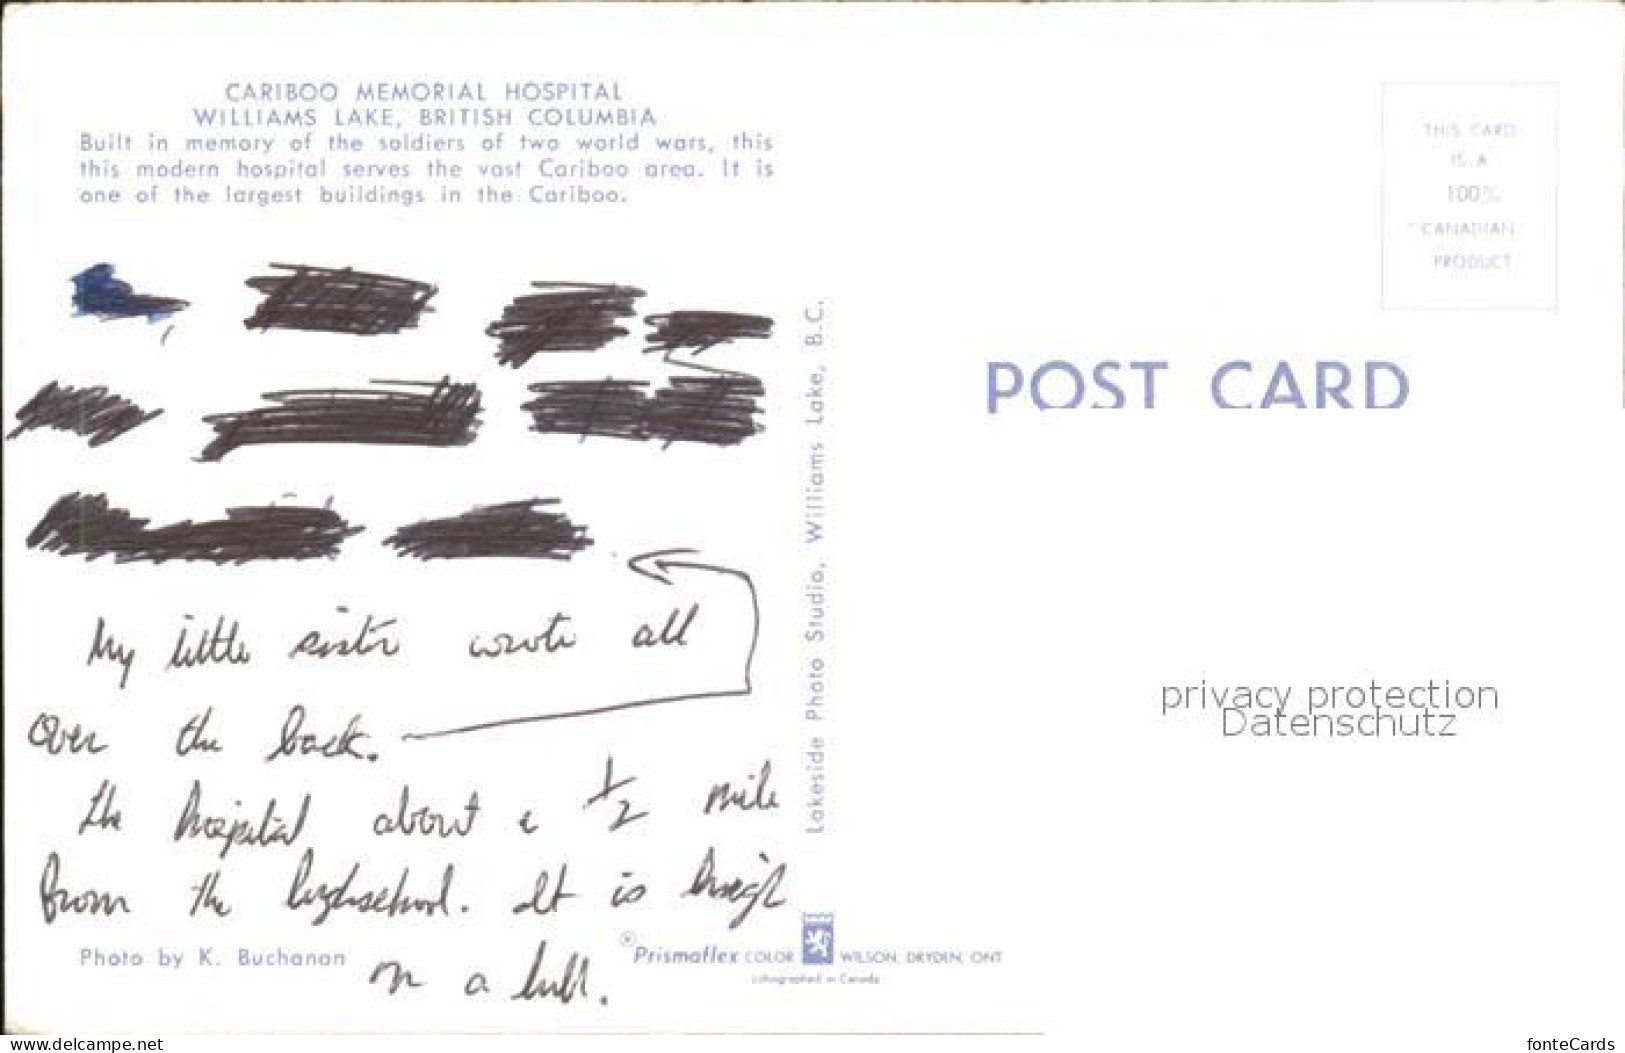 CARIBOO MEMORIAL HOSPITAL
WILLIAMS LAKE, BRITISH COLUMBIA
Built in memory of the soldiers of two world wars, this
this modern hospital serves the vast Cariboo area. It is
one of the largest buildings in the Cariboo.
My little sister wrote all
over the back.
the hospital about a 1/2 mile
from the highschool. It is
on a hill.
Photo by K. Buchanan
Lakeside Photo Studio, Williams Lake, B.C.
®Prismaflex COLOR WILSON, DRYDEN, ONT
Lithographed in Canada
THIS CARD
IS A
100%
CANADIAN
PRODUCT
POST CARD
privacy protection
Datenschutz
www.delcampe.net
fonteCards